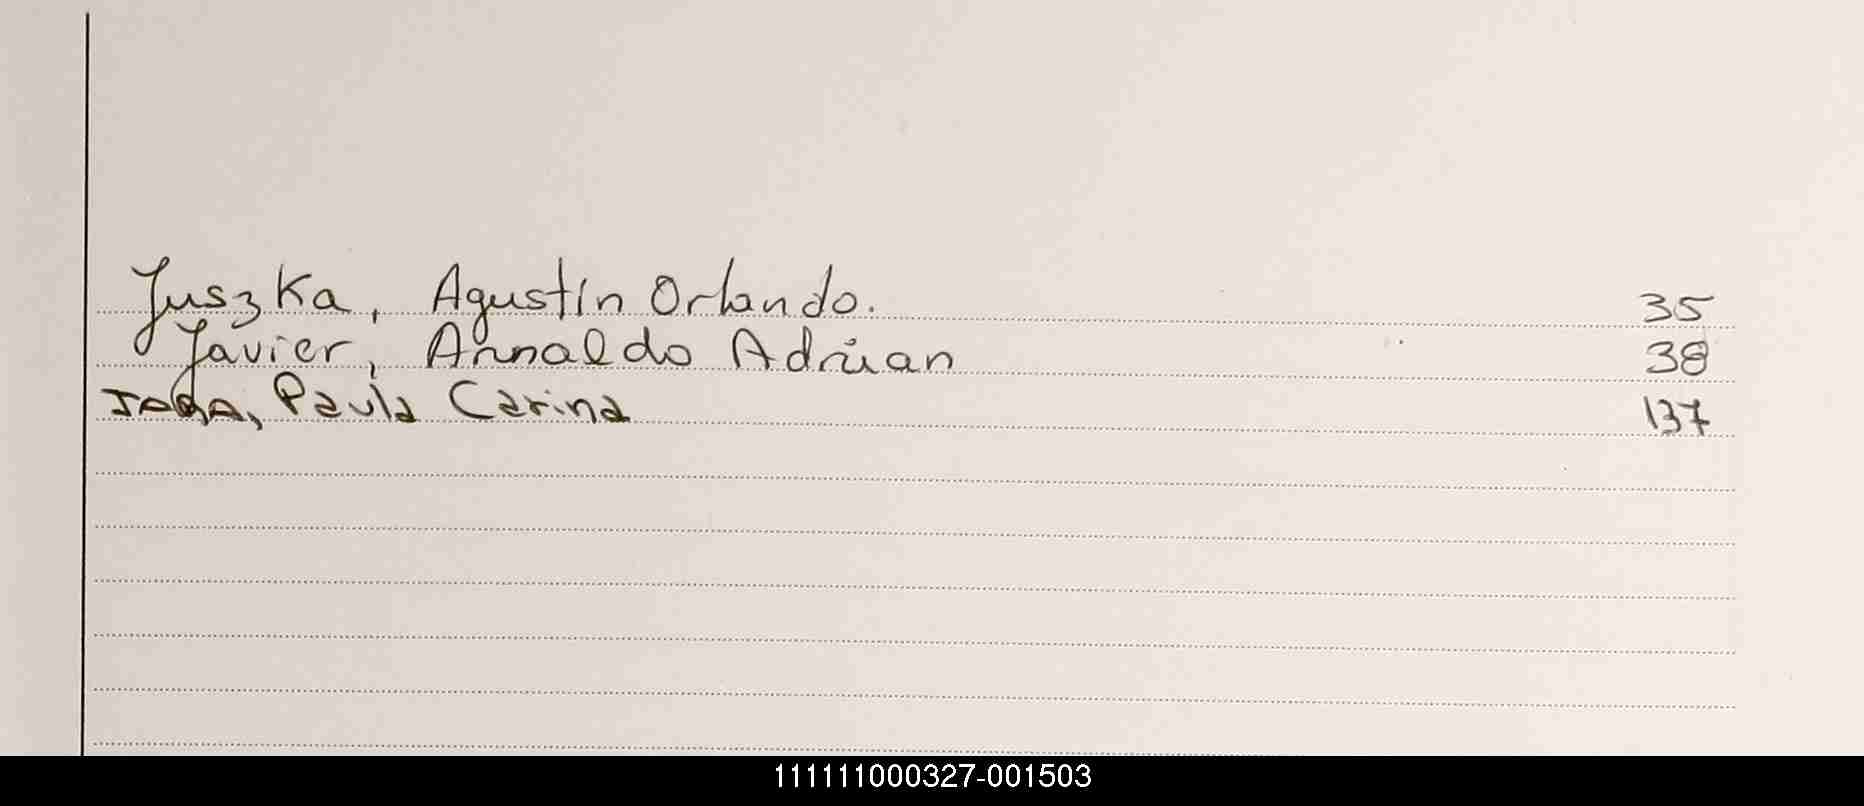 Juszka, Agustín Orlando. 35
Javier, Arnaldo Adrian 38
JARA, Paula Carina 137
111111000327-001503